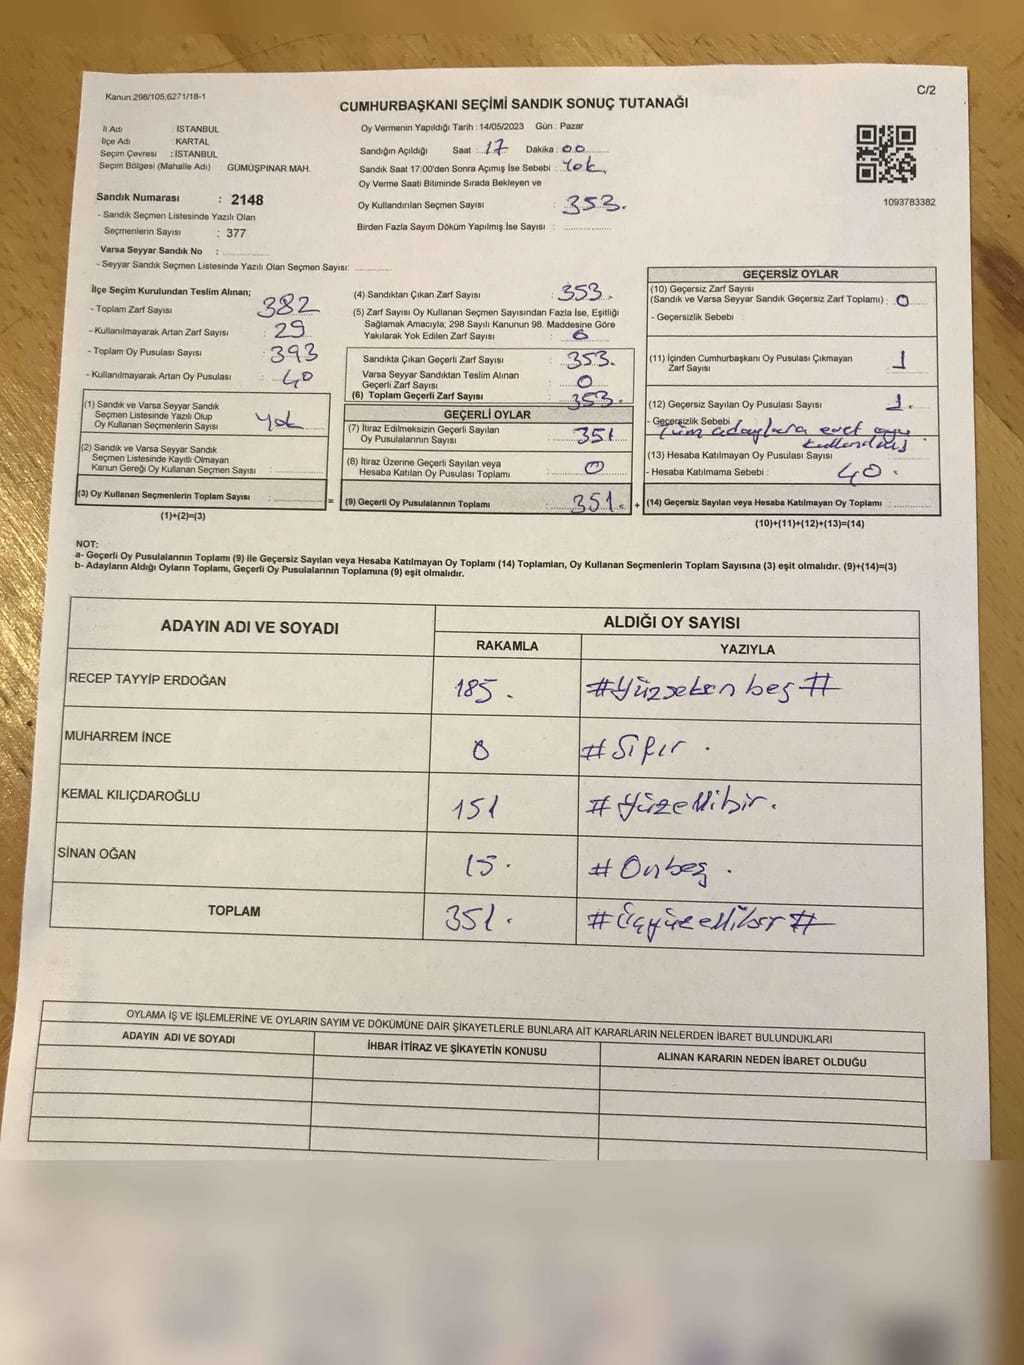 Kanun:298/105,6271/18-1
C/2
CUMHURBAŞKANI SEÇİMİ SANDIK SONUÇ TUTANAĞI
İl Adı : İSTANBUL
İlçe Adı : KARTAL
Seçim Çevresi : İSTANBUL
Seçim Bölgesi (Mahalle Adı) : GÜMÜŞPINAR MAH.
Oy Vermenin Yapıldığı Tarih : 14/05/2023 Gün : Pazar
Sandığın Açıldığı Saat : 17 Dakika : 00
Sandık Saat 17:00'den Sonra Açımış İse Sebebi : Yok.
Oy Verme Saati Bitiminde Sırada Bekleyen ve
Oy Kullandırılan Seçmen Sayısı : 353.
Birden Fazla Sayım Döküm Yapılmış İse Sayısı :
1093783382
Sandık Numarası : 2148
- Sandık Seçmen Listesinde Yazılı Olan
Seçmenlerin Sayısı : 377
Varsa Seyyar Sandık No :
- Seyyar Sandık Seçmen Listesinde Yazılı Olan Seçmen Sayısı:
İlçe Seçim Kurulundan Teslim Alınan;
- Toplam Zarf Sayısı : 382
- Kullanılmayarak Artan Zarf Sayısı : 29
- Toplam Oy Pusulası Sayısı : 393
- Kullanılmayarak Artan Oy Pusulası : 40
(1) Sandık ve Varsa Seyyar Sandık
Seçmen Listesinde Yazılı Olup
Oy Kullanan Seçmenlerin Sayısı : Yok
(2) Sandık ve Varsa Seyyar Sandık
Seçmen Listesinde Kayıtlı Olmayan
Kanun Gereği Oy Kullanan Seçmen Sayısı :
(3) Oy Kullanan Seçmenlerin Toplam Sayısı :
(1)+(2)=(3)
=
(4) Sandıktan Çıkan Zarf Sayısı : 353.
(5) Zarf Sayısı Oy Kullanan Seçmen Sayısından Fazla İse, Eşitliği
Sağlamak Amacıyla; 298 Sayılı Kanunun 98. Maddesine Göre
Yakılarak Yok Edilen Zarf Sayısı : 0
Sandıkta Çıkan Geçerli Zarf Sayısı : 353.
Varsa Seyyar Sandıktan Teslim Alınan
Geçerli Zarf Sayısı : 0
(6) Toplam Geçerli Zarf Sayısı : 353.
GEÇERLİ OYLAR
(7) İtiraz Edilmeksizin Geçerli Sayılan
Oy Pusulalarının Sayısı : 351
(8) İtiraz Üzerine Geçerli Sayılan veya
Hesaba Katılan Oy Pusulası Toplamı : 0
(9) Geçerli Oy Pusulalarının Toplamı : 351.
+
GEÇERSİZ OYLAR
(10) Geçersiz Zarf Sayısı
(Sandık ve Varsa Seyyar Sandık Geçersiz Zarf Toplamı) : 0
- Geçersizlik Sebebi :
(11) İçinden Cumhurbaşkanı Oy Pusulası Çıkmayan
Zarf Sayısı : 1
(12) Geçersiz Sayılan Oy Pusulası Sayısı : 1.
- Geçersizlik Sebebi : Tüm adaylara evet oyu
kullanılmış
(13) Hesaba Katılmayan Oy Pusulası Sayısı :
- Hesaba Katılmama Sebebi : 40.
(14) Geçersiz Sayılan veya Hesaba Katılmayan Oy Toplamı :
(10)+(11)+(12)+(13)=(14)
NOT:
a- Geçerli Oy Pusulalarının Toplamı (9) ile Geçersiz Sayılan veya Hesaba Katılmayan Oy Toplamı (14) Toplamları, Oy Kullanan Seçmenlerin Toplam Sayısına (3) eşit olmalıdır. (9)+(14)=(3)
b- Adayların Aldığı Oyların Toplamı, Geçerli Oy Pusulalarının Toplamına (9) eşit olmalıdır.
ADAYIN ADI VE SOYADI ALDIĞI OY SAYISI
RAKAMLA YAZIYLA
RECEP TAYYİP ERDOĞAN 185. #Yüzseksen beş#
MUHARREM İNCE 0 #Sıfır.
KEMAL KILIÇDAROĞLU 151 #Yüzellibir.
SİNAN OĞAN 15. #Onbeş.
TOPLAM 351. #Üçyüzellibir#
OYLAMA İŞ VE İŞLEMLERİNE VE OYLARIN SAYIM VE DÖKÜMÜNE DAİR ŞİKAYETLERLE BUNLARA AİT KARARLARIN NELERDEN İBARET BULUNDUKLARI
ADAYIN ADI VE SOYADI İHBAR İTİRAZ VE ŞİKAYETİN KONUSU ALINAN KARARIN NEDEN İBARET OLDUĞU